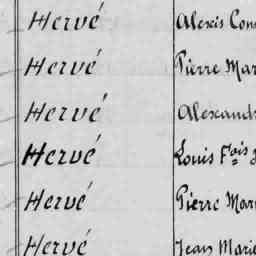 Hervé Alexis
Hervé Pierre
Hervé
Hervé Louis Fois
Hervé Pierre
Hervé Jean Marie